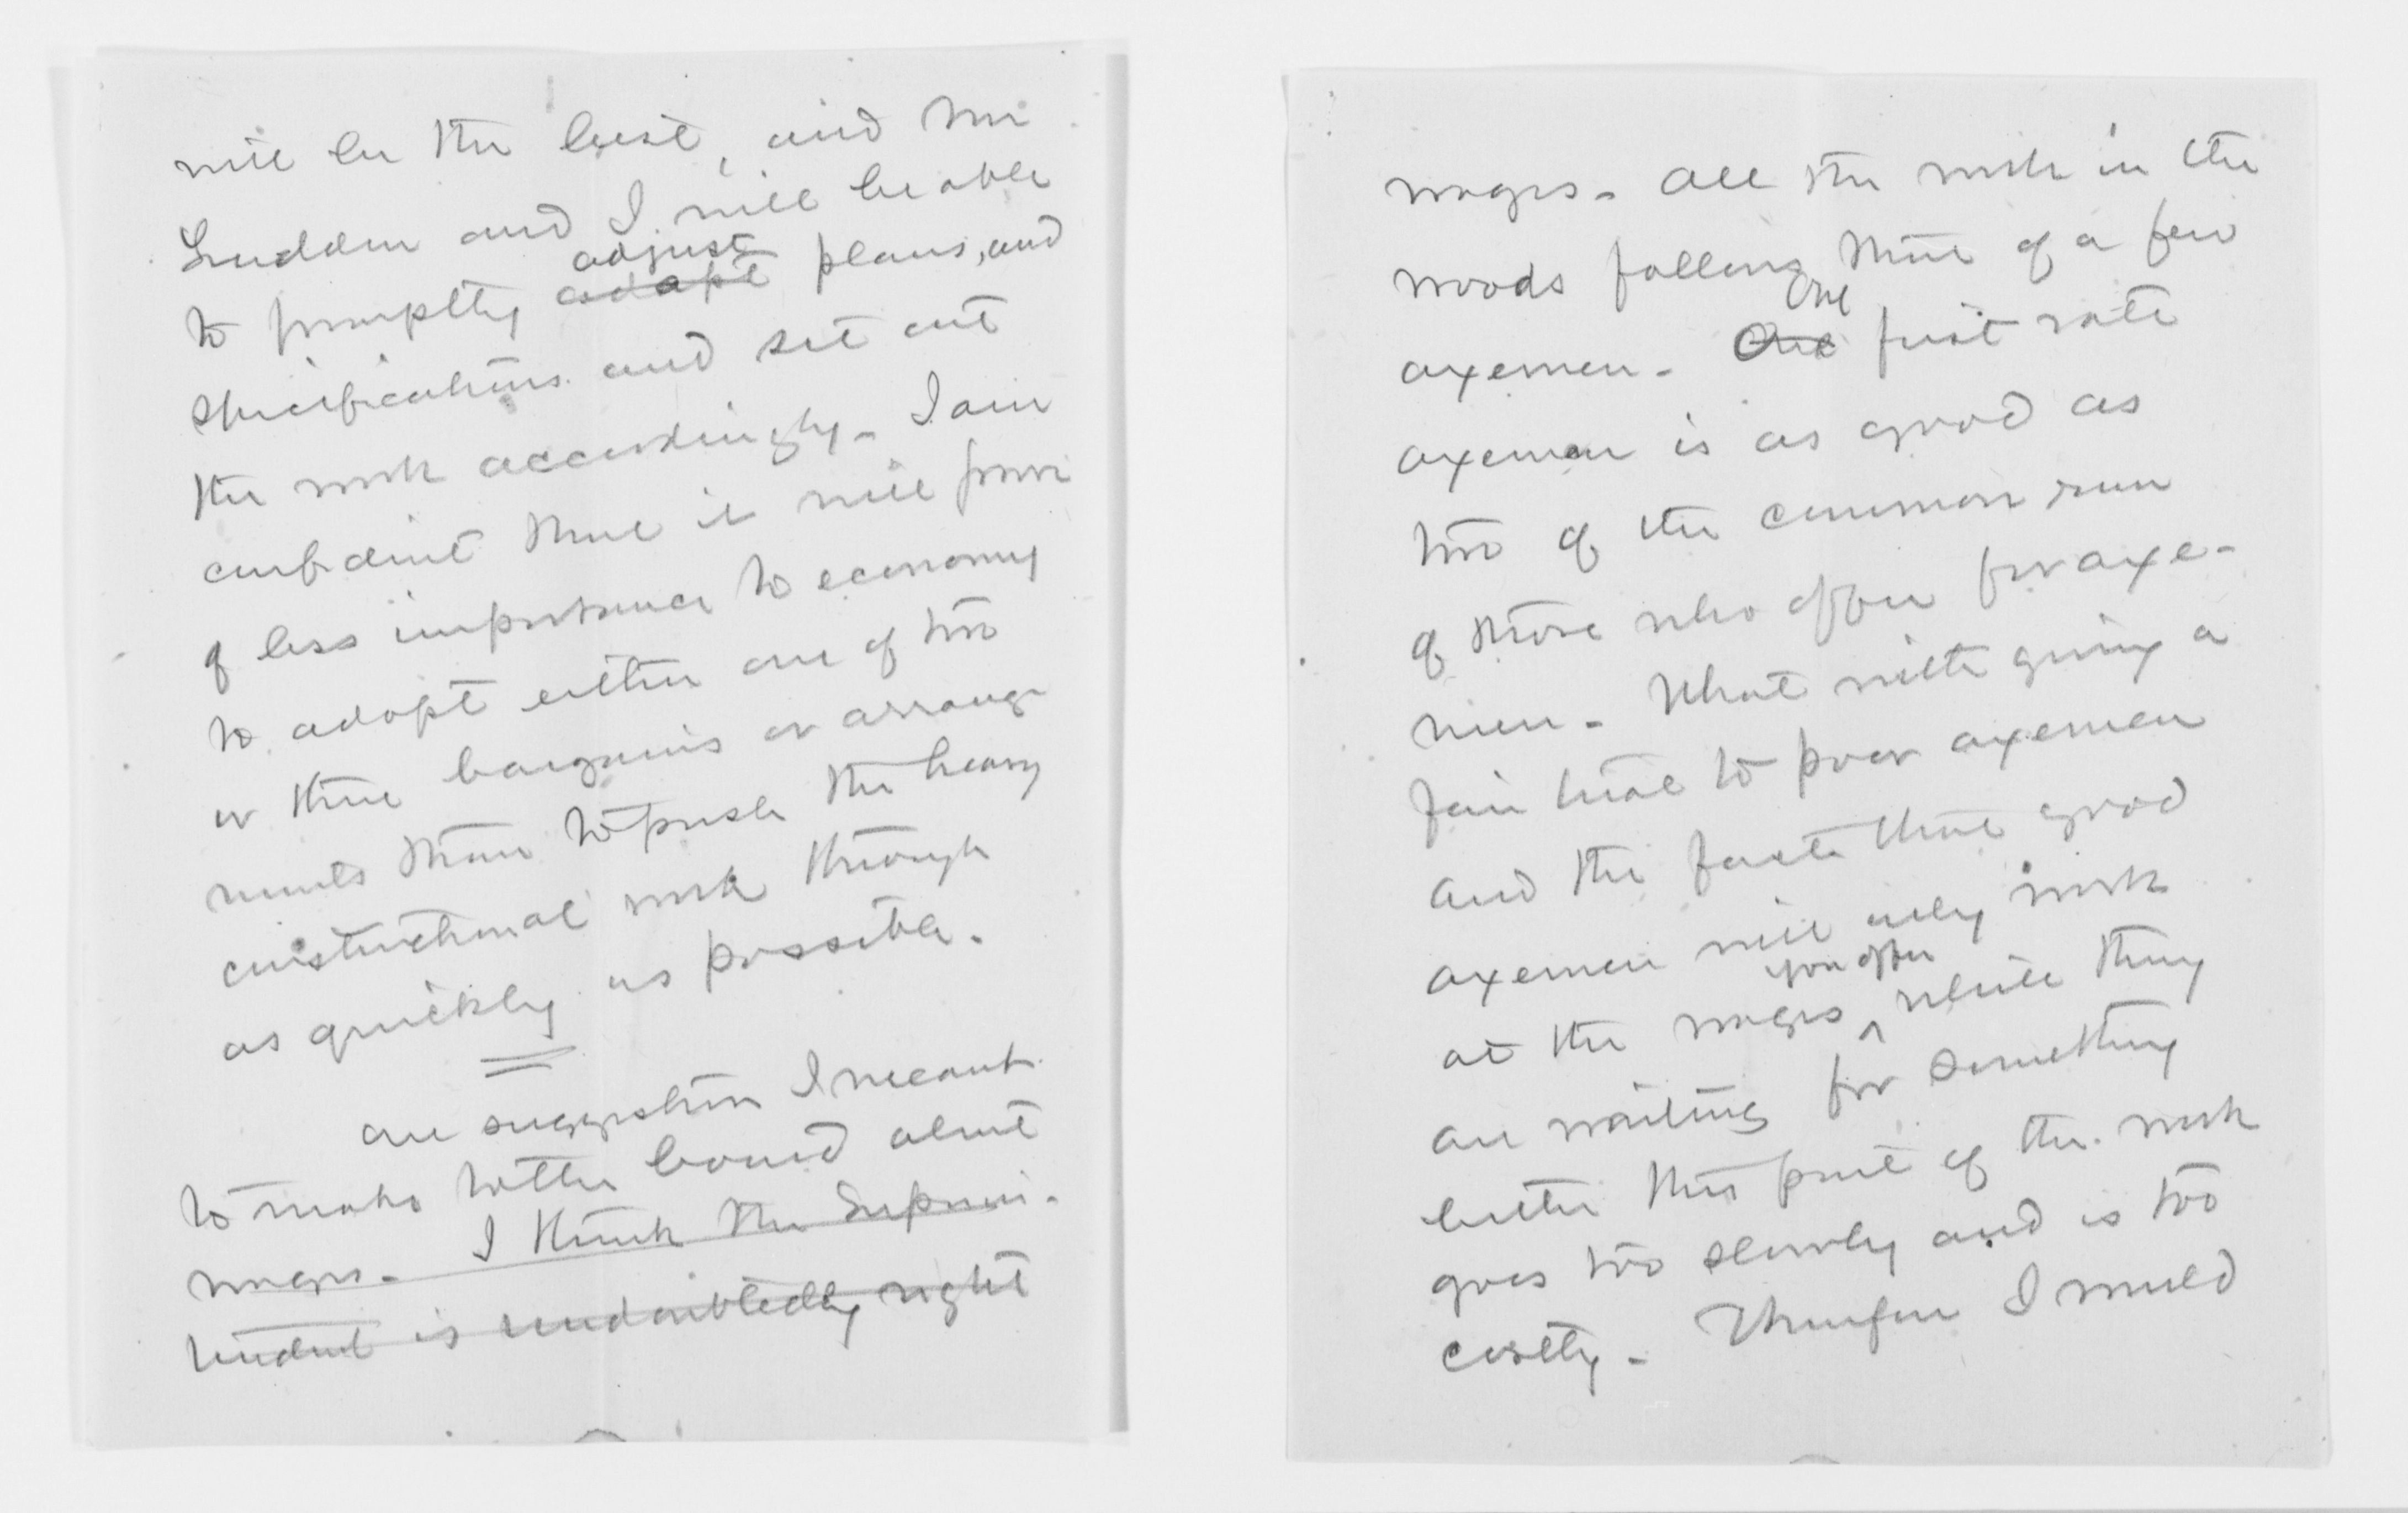 will be the best, and Mr
Sudden and I will be able
to promptly adjust adapt plans, and
specifications and set out
the work accordingly - I am
confident that it will prove
of less importance to economy
to adopt either one of two
or three bargains or arrange
ments than to push the heavy
constructional work through
as quickly as possible.
One suggestion I meant
to make to the board about
wages - I think the Superin-
tendent is undoubtedly right
wages - All the work in the
woods falling that of a few
axemen - One One first rate
axeman is as good as
two of the common run
of those who offer for axe-
men - What with giving a
fair trial to poor axemen
and the fact that good
axemen will only work
you offer
at the wages ^ while they
are waiting for something
better this part of the work
goes too slowly and is too
costly - Therefore I would